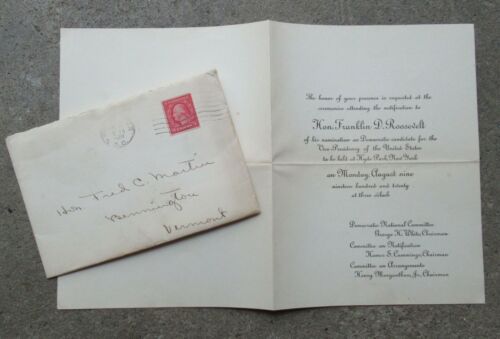 Hon. Fred C. Martin
Bennington
Vermont
The honor of your presence is requested at the
ceremonies attending the notification to
Hon. Franklin D. Roosevelt
of his nomination as Democratic candidate for the
Vice-Presidency of the United States
to be held at Hyde Park, New York
on Monday, August nine
nineteen hundred and twenty
at three o'clock
Democratic National Committee
George H. White, Chairman
Committee on Notification
Homer S. Cummings, Chairman
Committee on Arrangements
Henry Morgenthau, Jr., Chairman